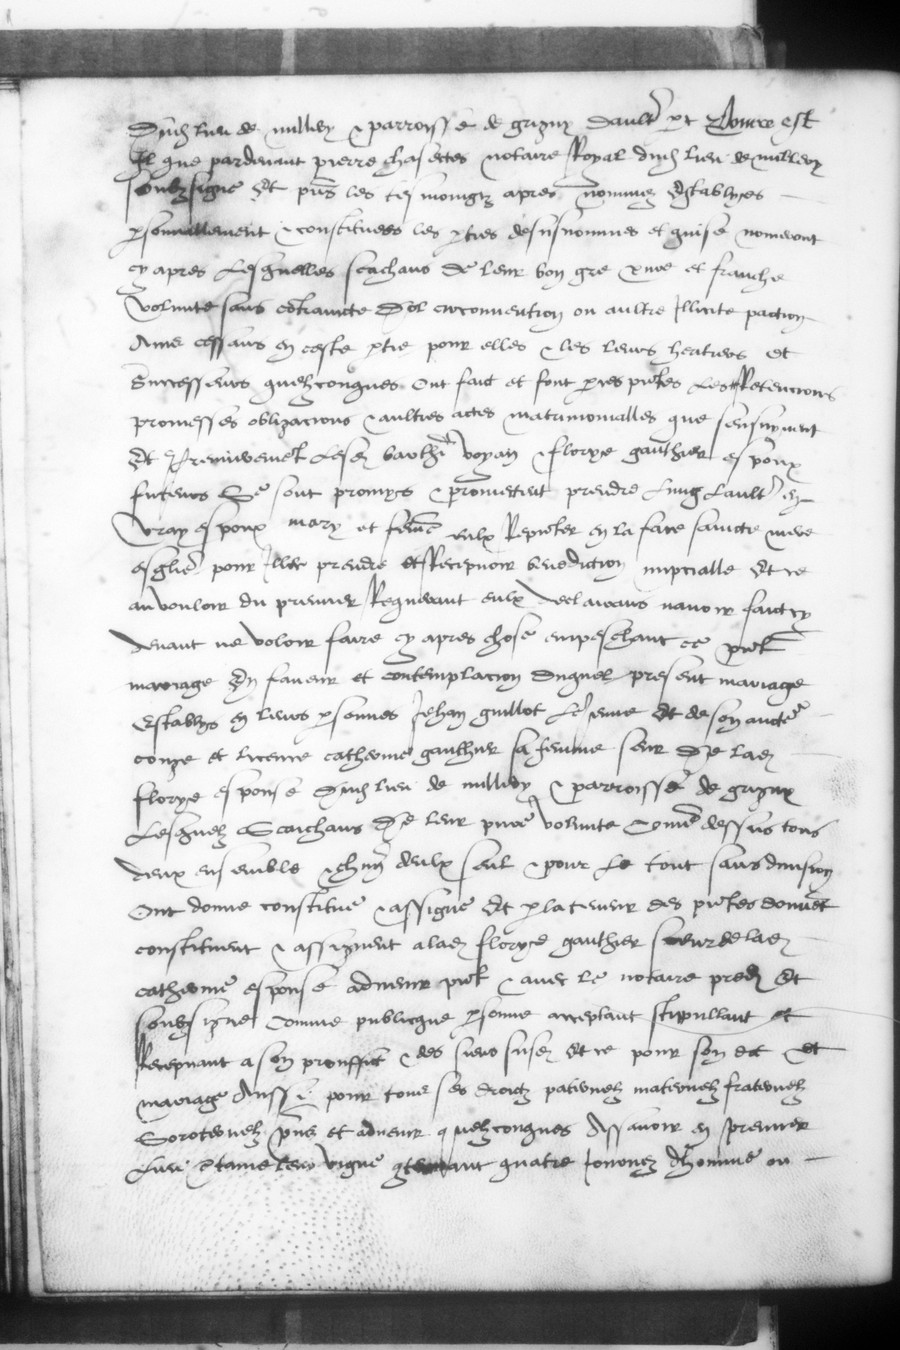 Dud lieu de millery & parroisse de grigny daultr pt Comme est
Il que pardevant pierre chasectes notaire Royal dud lieu de millery
soubzsigne Et pns les tesmoingz apres nommez Establyes
psonnellement & constituees les pties desusnommes et quise nomeront
cy apres Lesquelles scachans De leur bon gre pure et franche
volunte sans contraincte Dol circonvention ou aultre Illicite paction
Ame cessans en ceste ptie pour elles & les leurs heretiers Et
Successeurs quelzconques Ont faict et font p ces pntes Les Retencions
promesses obligacions & aultres actes matrimonialles que sensuyvent
Et Premierement Lesd barthr voyan & florye gauthier espoux
futeurs Se sont promys & promectent prendre Lung Laultr en
vray espoux mary et feme eulx Repnter en la face saincte mere
esglie pour Illec prendre et Recepvoir benediction nupcialle Et ce
au vouloir du premier Requerant eulx declairans navoir faict cy
devant ne voloir faire cy apres chose empeschant ce pnt
mariage En faveur et contemplacion duquel present mariage
Establys en leurs psonnes Jehan guillot Le jeune Et de son aucte
conge et licence catherine gauthier sa femme seur De lad
florye espouse Dud lieu de millery & parroisse de grigny
Lesquelz Scaichans De leur pure volunte Come dessus tous
deux ensemble & chun deulx seul & pour Le tout sans division
Ont donne constitue & assigne Et p la teneur des pntes donnet
constituent & assignent a lad florye gauthier seur de lad
catherine espouse advenir pnt & avec le notaire pred Et
soubzsigne Comme publicque psonne acceptant stipullant et
Recepvant a son prouffict & des siens susd Et ce pour son dot Et
mariage Aussi pour tous ses droictz paternelz maternelz fraternelz
Soroternelz pns et advenir quelzconques Assavoir en premier
Lieu vigne contenant quatre Jornez dhomme ou